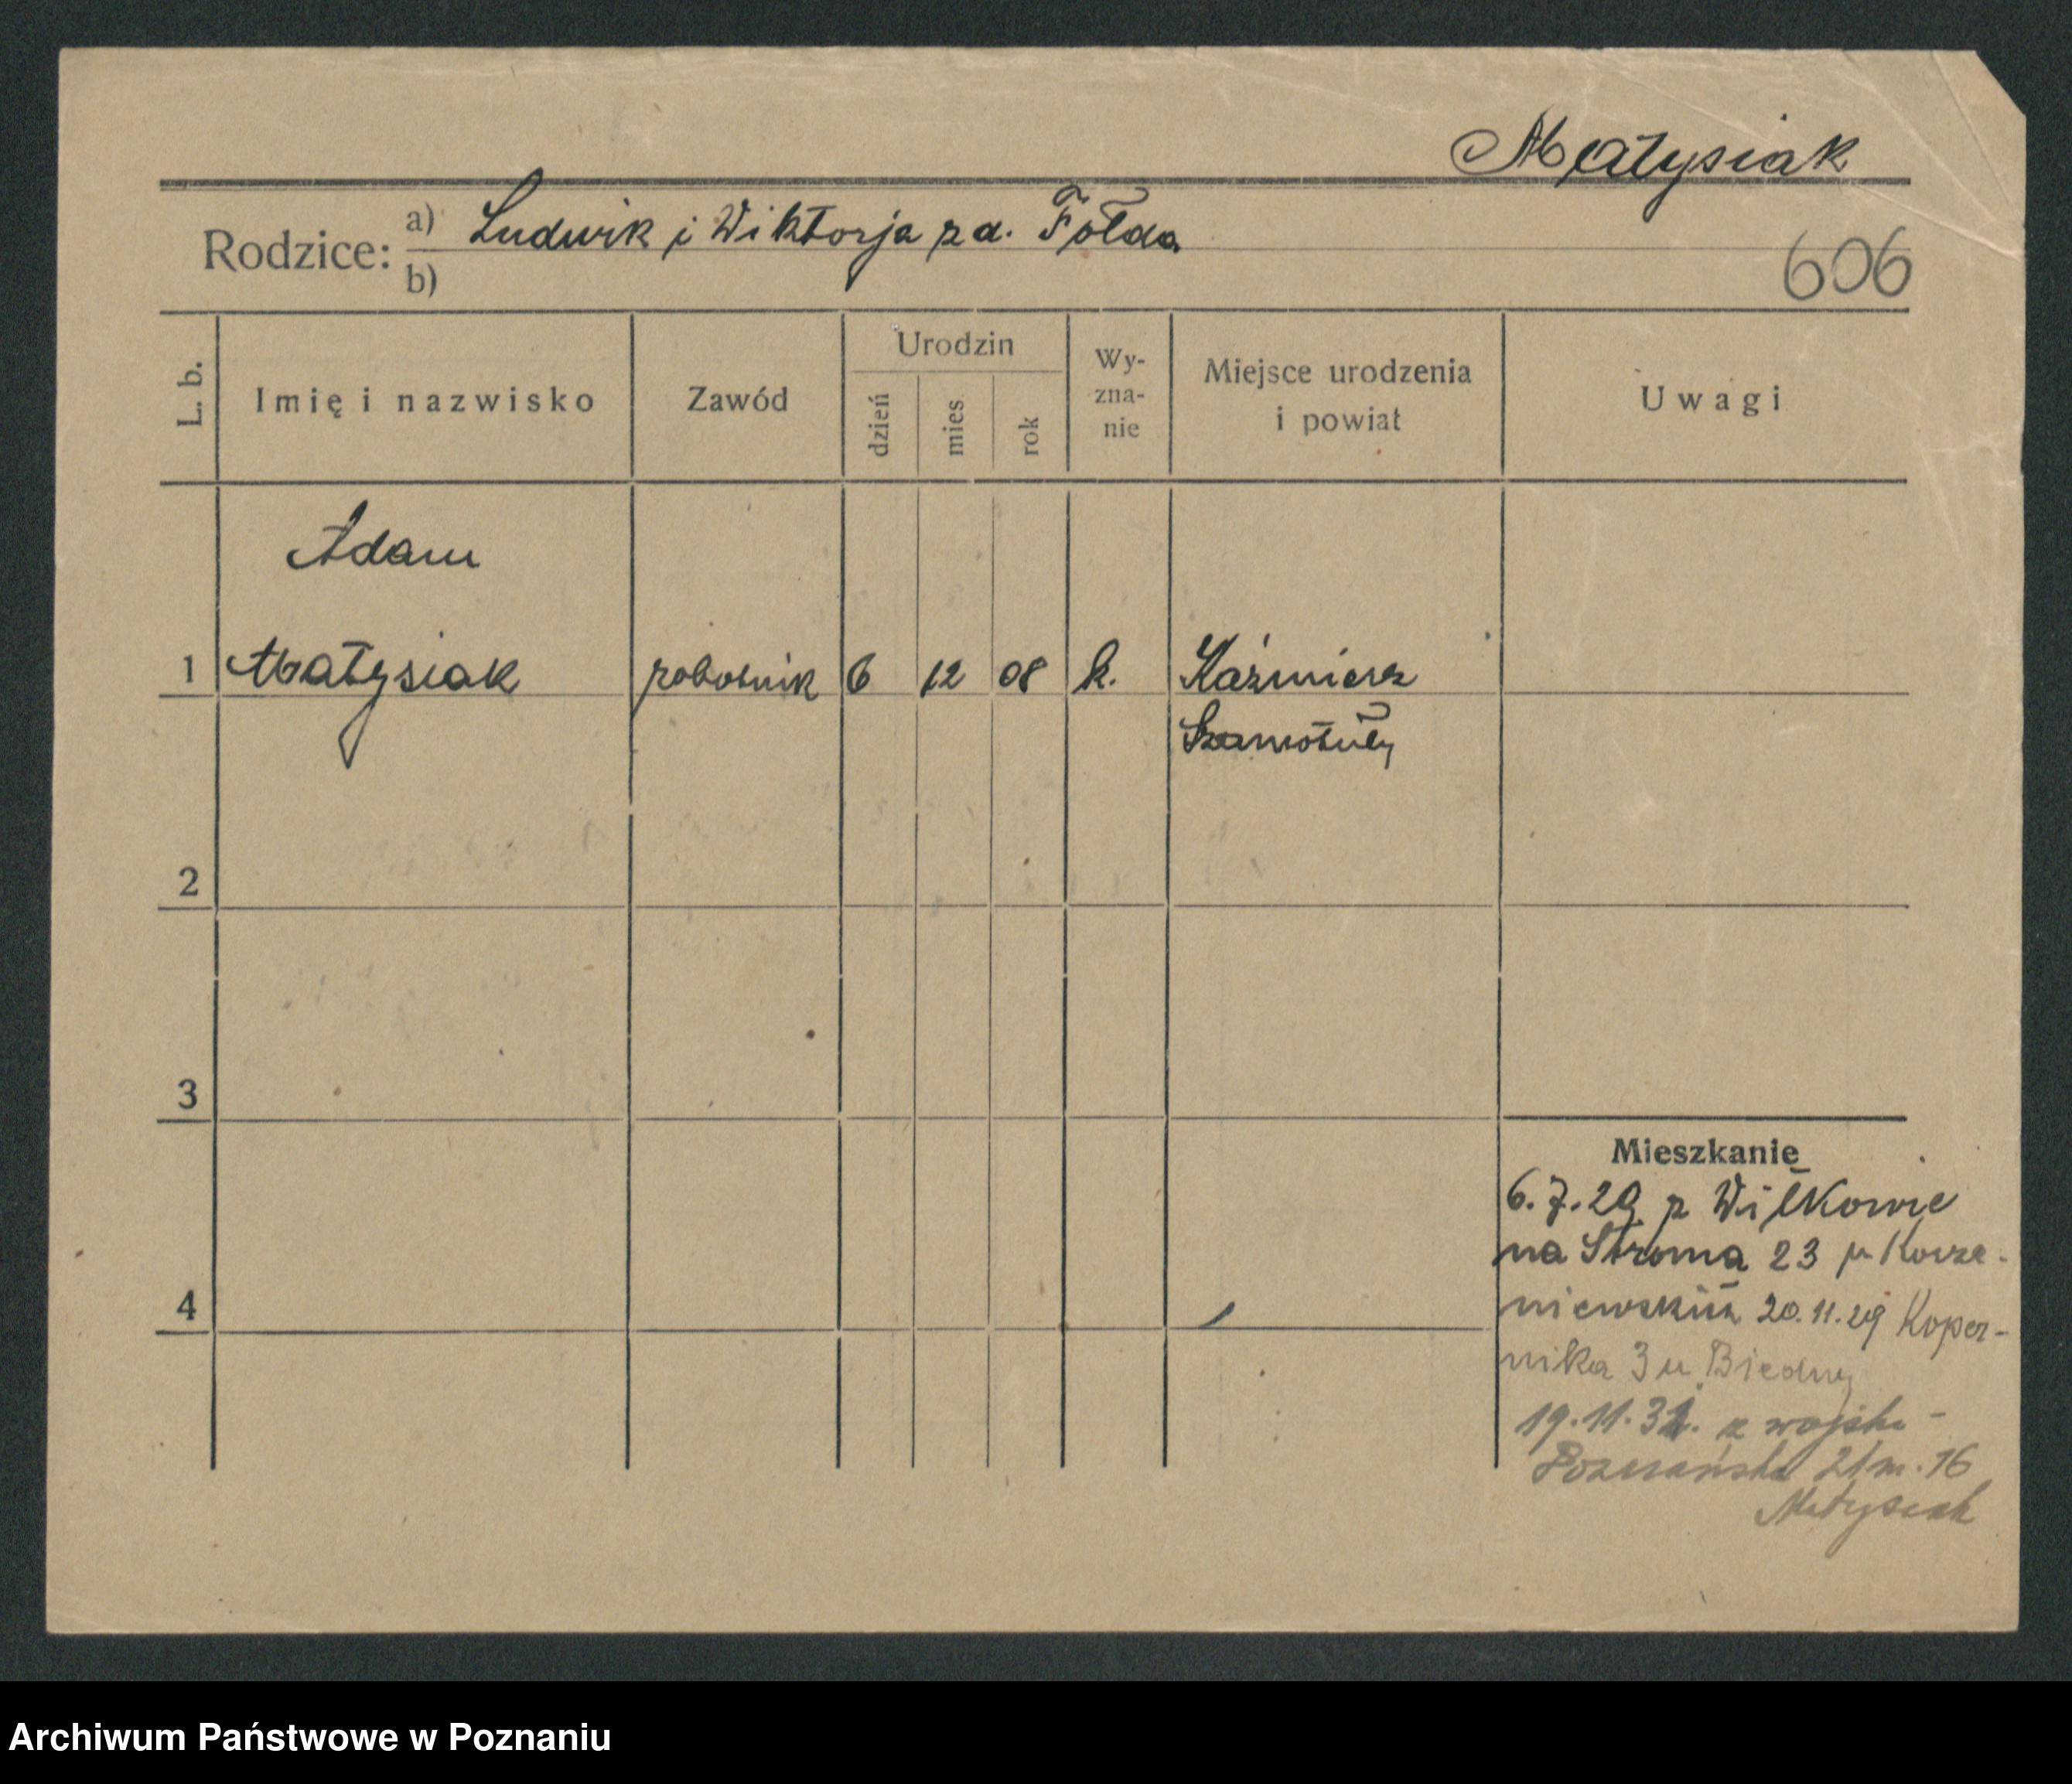 Małysiak
Rodzice: a) Ludwik i Wiktorja z d. Fołda
b)
606
L. b.
Imię i nazwisko
Zawód
Urodzin
dzień
mies
rok
Wy-
zna-
nie
Miejsce urodzenia
i powiat
Uwagi
Adam
1 Małysiak robotnik 6 12 08 k. Kaźmierz
Szamotuły
2
3
4
Mieszkanie
6.7.29 z Wilkowie
na Stroma 23 u Korze-
niewskich 20.11.29 Koper-
nika 3 u Biedny
19.11.31. z wojska -
Poznańska 21 m. 16
Małysiak
Archiwum Państwowe w Poznaniu